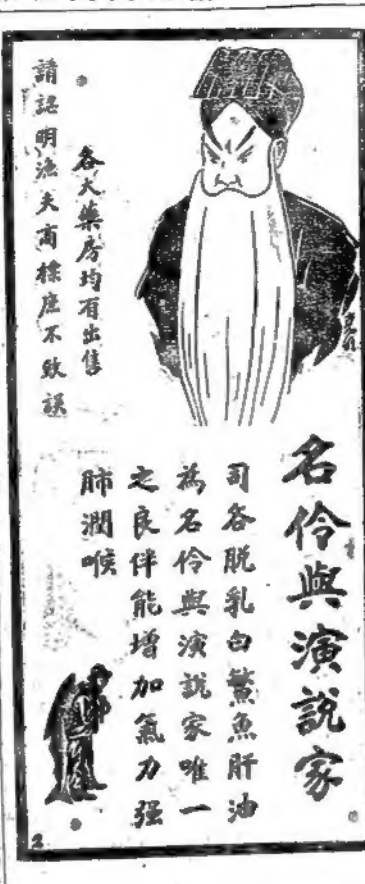 名伶與演說家
司各脫乳白鱉魚肝油
為名伶與演說家唯一
之良伴能增加氣力强
肺潤喉
各大藥房均有出售
請認明漁夫商標庶不致誤
2